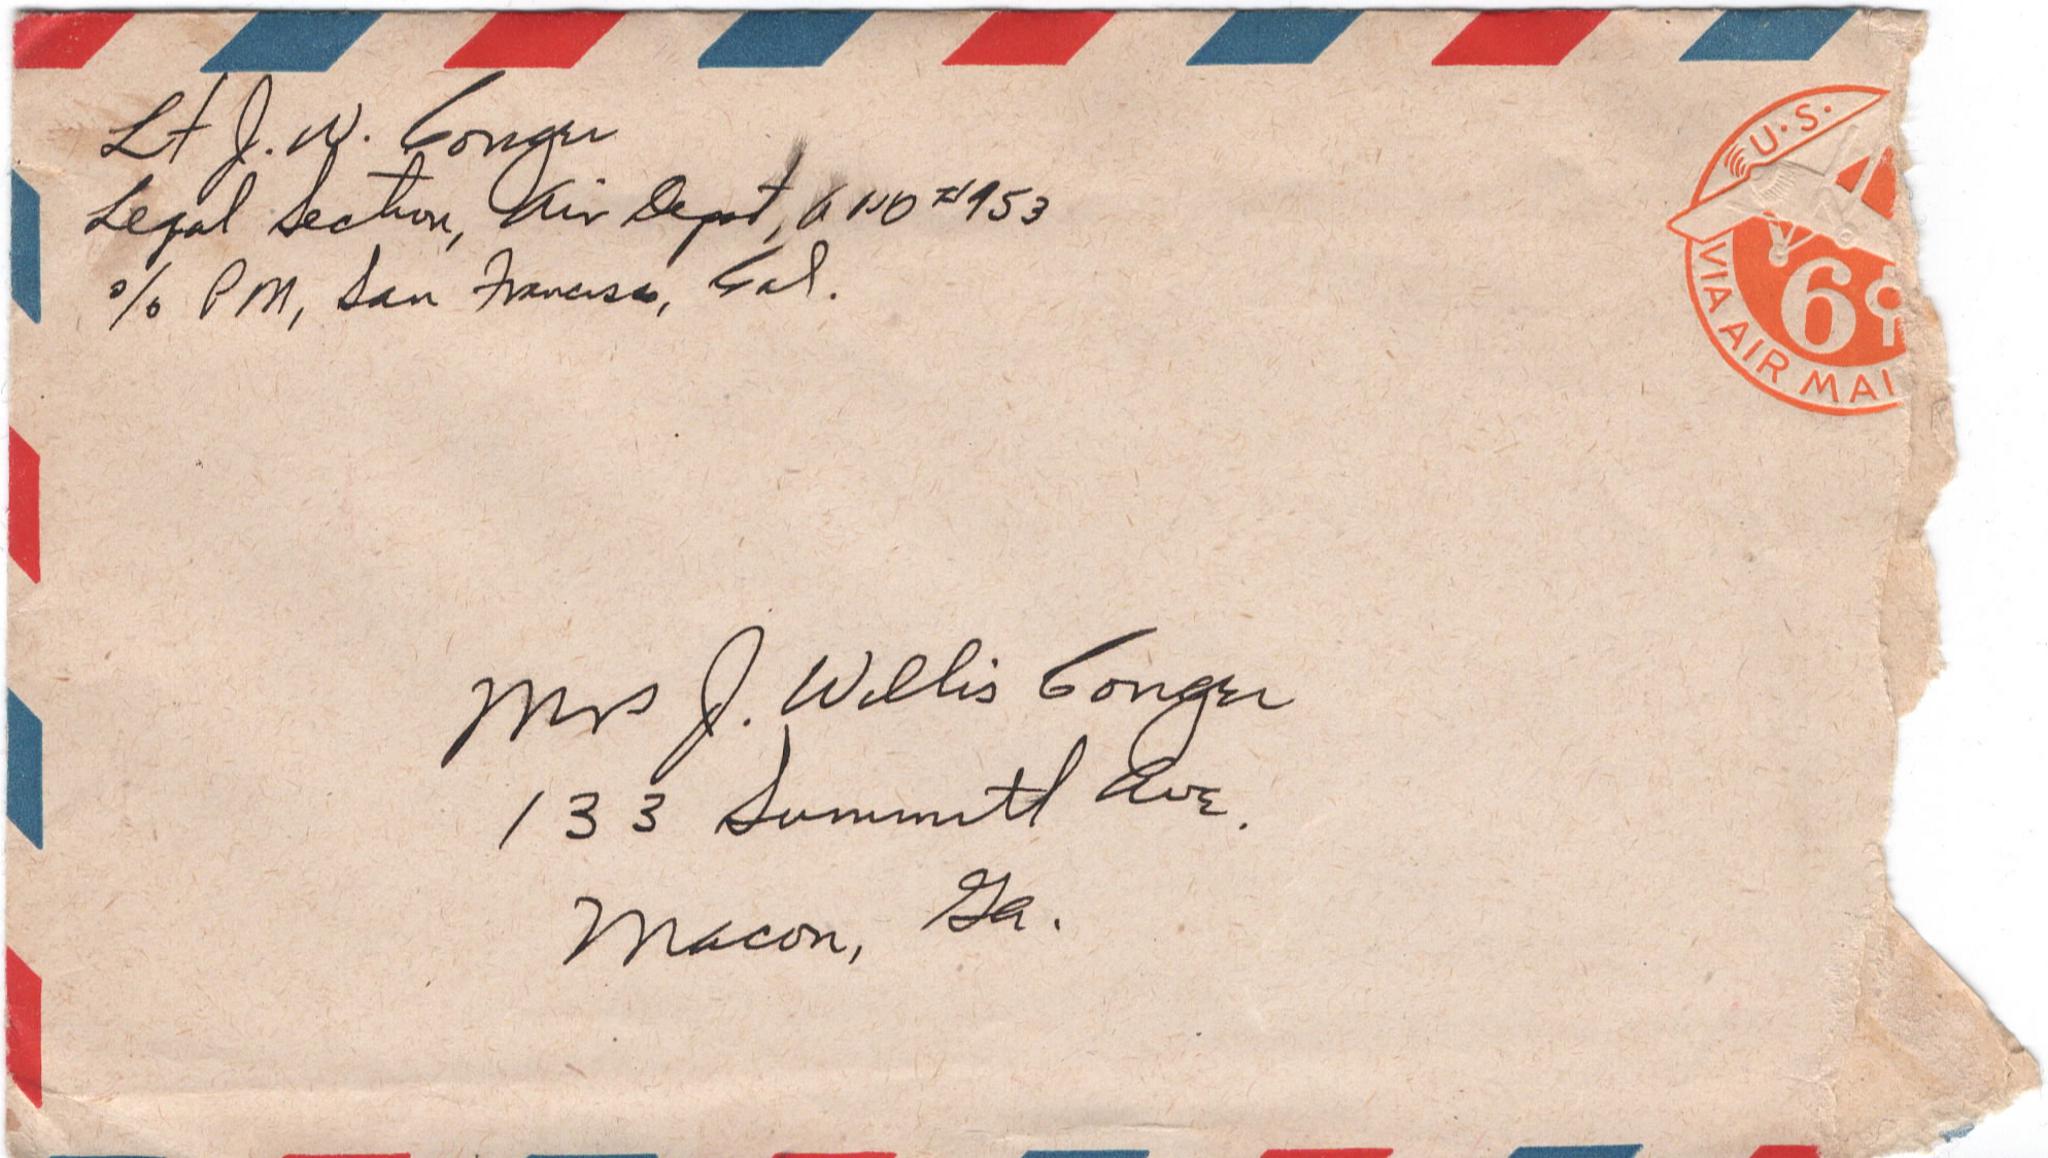 Lt J. W. Conger
Legal Section, Air Depot, APO #953
c/o PM, San Francisco, Cal.
U.S.
VIA AIR MAI
6¢
Mrs J. Willis Conger
133 Summitt Ave.
Macon, Ga.